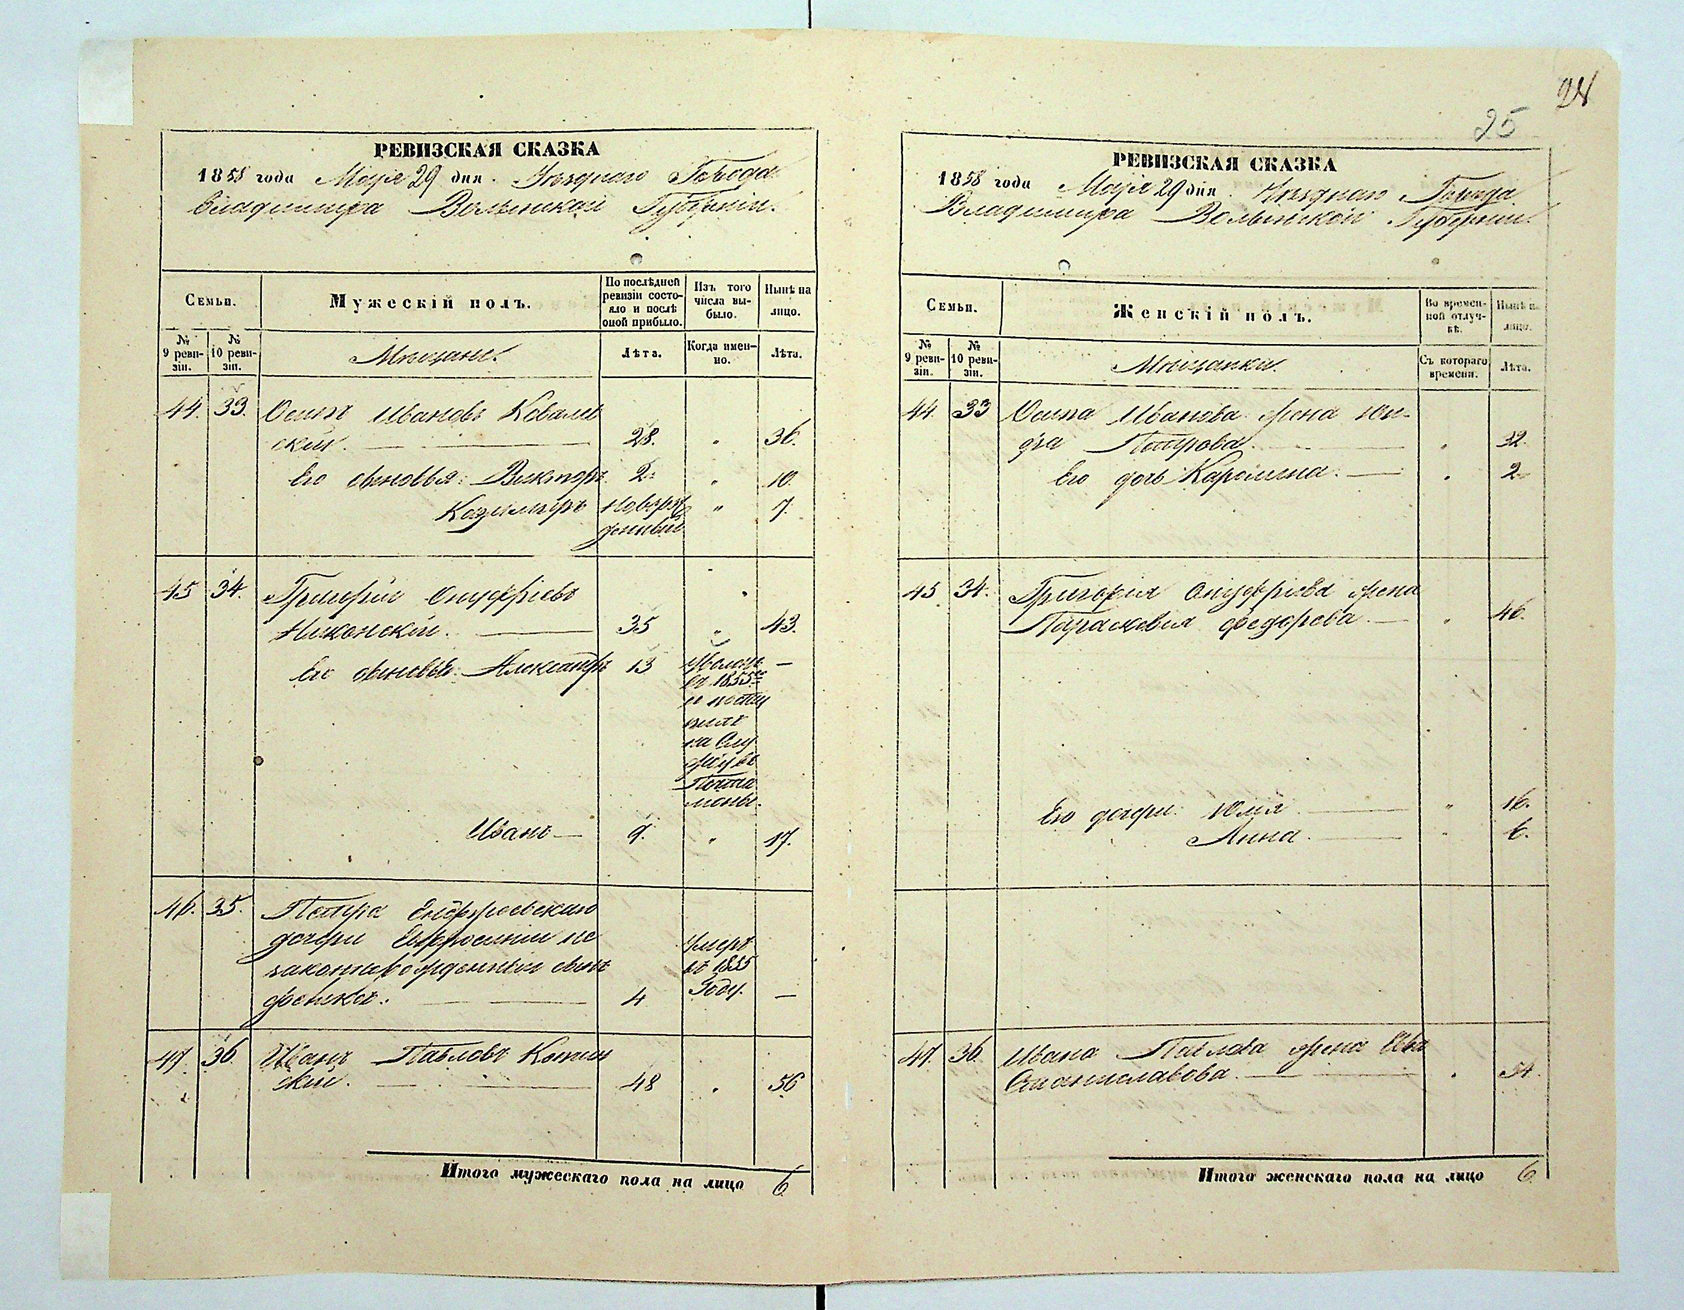 24
25
РЕВИЗСКАЯ СКАЗКА
1858 года Маія 29 дня. Уѣзднаго Города
Владимира Волынской Губерніи.
Семьи.
Мужескій полъ.
По послѣдней
ревизіи состо-
яло и послѣ
оной прибыло.
Изъ того
числа вы-
было.
Нынѣ на
лицо.
№
9 реви-
зіи.
№
10 реви-
зіи.
Мѣщане.
Лѣта.
Когда имен-
но.
Лѣта.
44. 33. Осипъ Ивановъ Ковалев
скій. 28. " 36.
Его сыновья: Викторъ 2. " 10.
Казимиръ Новорож " 7.
денный
45 34. Григорій Онуфріевъ
Нижонскій. 35 " 43.
Его сыновья: Александръ 13 —
въ 1855
и посту
пилъ
на Слу
жбу въ
Иванъ — 9. " 17.
46. 35. Петра
дочери Ефросиніи не
законнорожденный сынъ умеръ
въ 1855
4 Году. —
47. 36. Иванъ Павловъ
скій. 48 " 56
Итого мужескаго пола на лицо 6
РЕВИЗСКАЯ СКАЗКА
1858 года Маія 29 дня Уѣзднаго Города
Владимира Волынской Губерніи.
Семьи.
Женскій полъ.
Во времен-
ной отлуч-
кѣ.
Нынѣ на
лицо.
№
9 реви-
зіи.
№
10 реви-
зіи.
Мѣщанки.
Съ котораго
времени.
Лѣта.
44. 33 Осипа Иванова жена
Петрова. " 32.
Его дочь Каролина. " 2
45 34. Григорія Онуфріева жена
Параскевія Федорова. " 46.
Его дочери: Юлія " 16.
Анна. " 6.
47. 36. Ивана Павлова жена Ева
Станиславова. " 54.
Итого женскаго пола на лицо 6